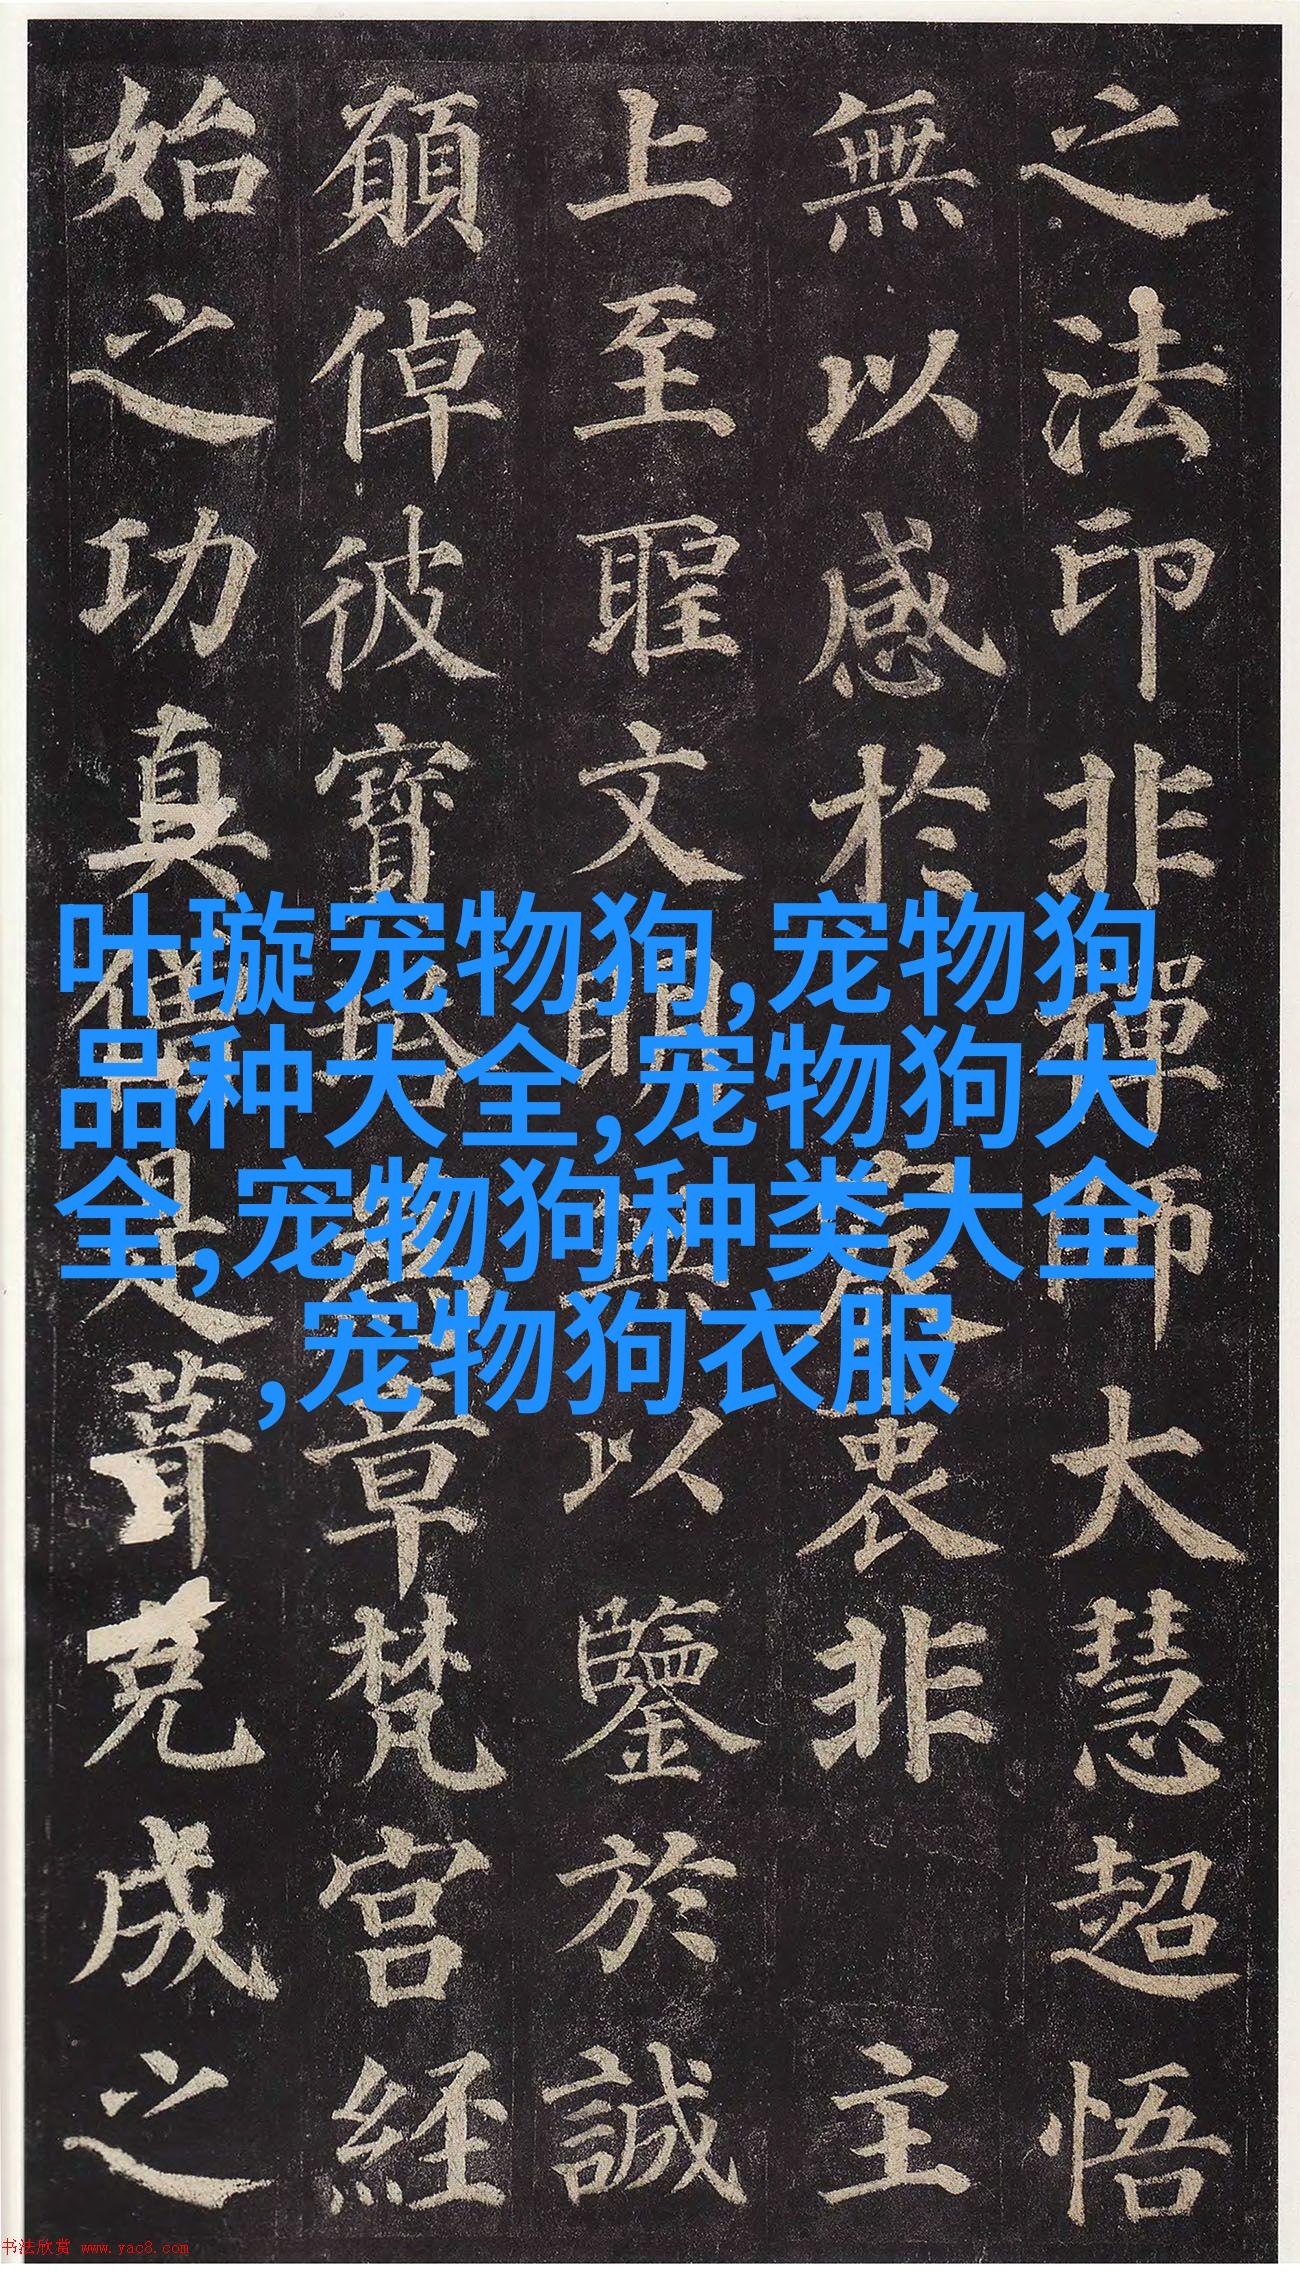 之法印非禪師大慧超悟
無以感於宸衷非 主
上至聖文明無以鑒於誠
願倬彼寶塔為章梵宮經
始之功真僧是葺克成之
叶璇宠物狗,宠物狗
品种大全,宠物狗大
全,宠物狗种类大全
,宠物狗衣服
书法欣赏 www.yac8.com